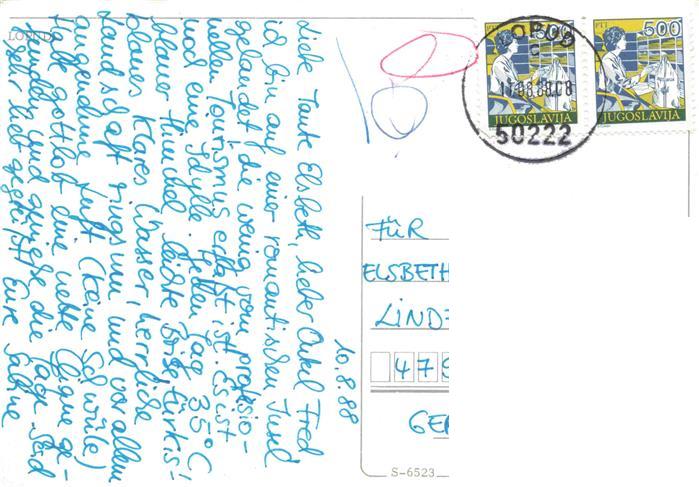 10.8.88
Liebe Tante Elsbeth, lieber Onkel Fred
ich bin auf einer romantischen Insel
gelandet die wenig vom professio-
nellen Tourismus erfaßt ist. Es ist
noch eine Idylle. Jeden Tag 35°C
blauer Himmel leichte Brise türkis-
blaues klares Wasser, herrliche
Landschaft ringsum, und vor allem
angenehme Luft (keine Schwüle)
Habe gottlob eine nette Clique ge-
funden und genieße die Tage. Seid
sehr lieb gegrüßt Eure
PTT 500
JUGOSLAVIJA
PTT 500
JUGOSLAVIJA
50222
FÜR
ELSBETH
LIND
47
GE
S-6523